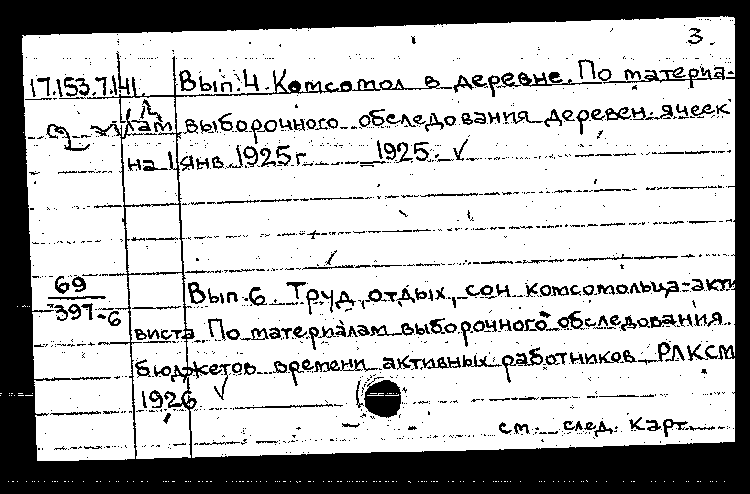 3.
17.153.7.141. Вып. 4. Комсомол в деревне. По материа-
лам выборочного обследования деревен. ячеек
на 1 янв. 1925 г. 1925. ✓
69
397-6
Вып. 6. Труд, отдых, сон комсомольца-акти
виста По материалам выборочного обследования
бюджетов времени активных работников РЛКСМ
1926 ✓
см. след. карт.